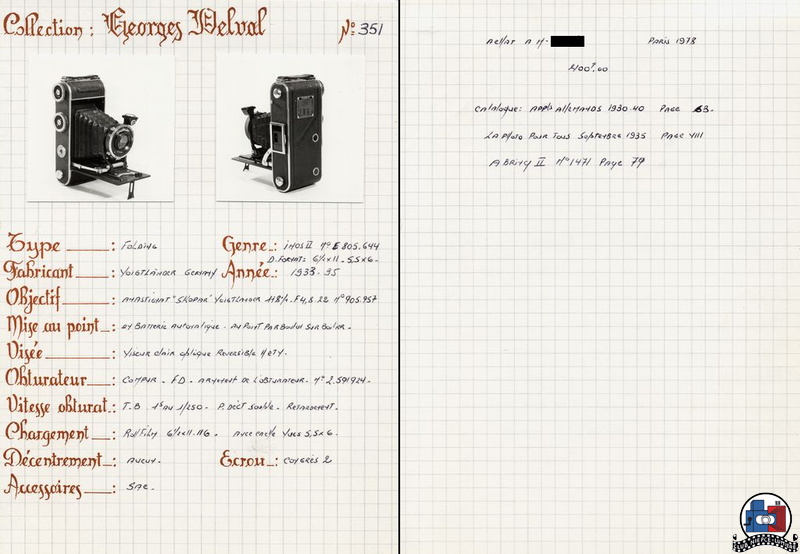 Collection : Georges Delval N°: 351
Type : Folding Genre : inos II N° E 805.644
D. Format= 6½x11 - 5,5x6 -
Fabricant : Voigtländer Germany Année : 1933-35
Objectif : Anastigmat "Skopar" Voigtländer F4,5.22 N° 905.957
Mise au point : et Batterie Automatique . Au Point Par Bouton Sur Boîtier .
Visée : Viseur clair optique Reversible .
Obturateur : Compur - FD . Armement de L'obturateur . N° 2.591924 .
Vitesse obturat : T.B 1s au 1/250 - P. Dect Souple . Retardement .
Chargement : Rollfilm 6½x11.116 - Avec cache Vues 5,5x6 .
Décentrement : Aucun . Ecrou : Congrès 2
Accessoires : Sac .
Achat A M- Paris 1978
400F,00
Catalogue: Appls Allemands 1930-40 Page 63 .
La Photo Pour Tous Septembre 1935 Page VIII
Abring II N°1471 Page 79